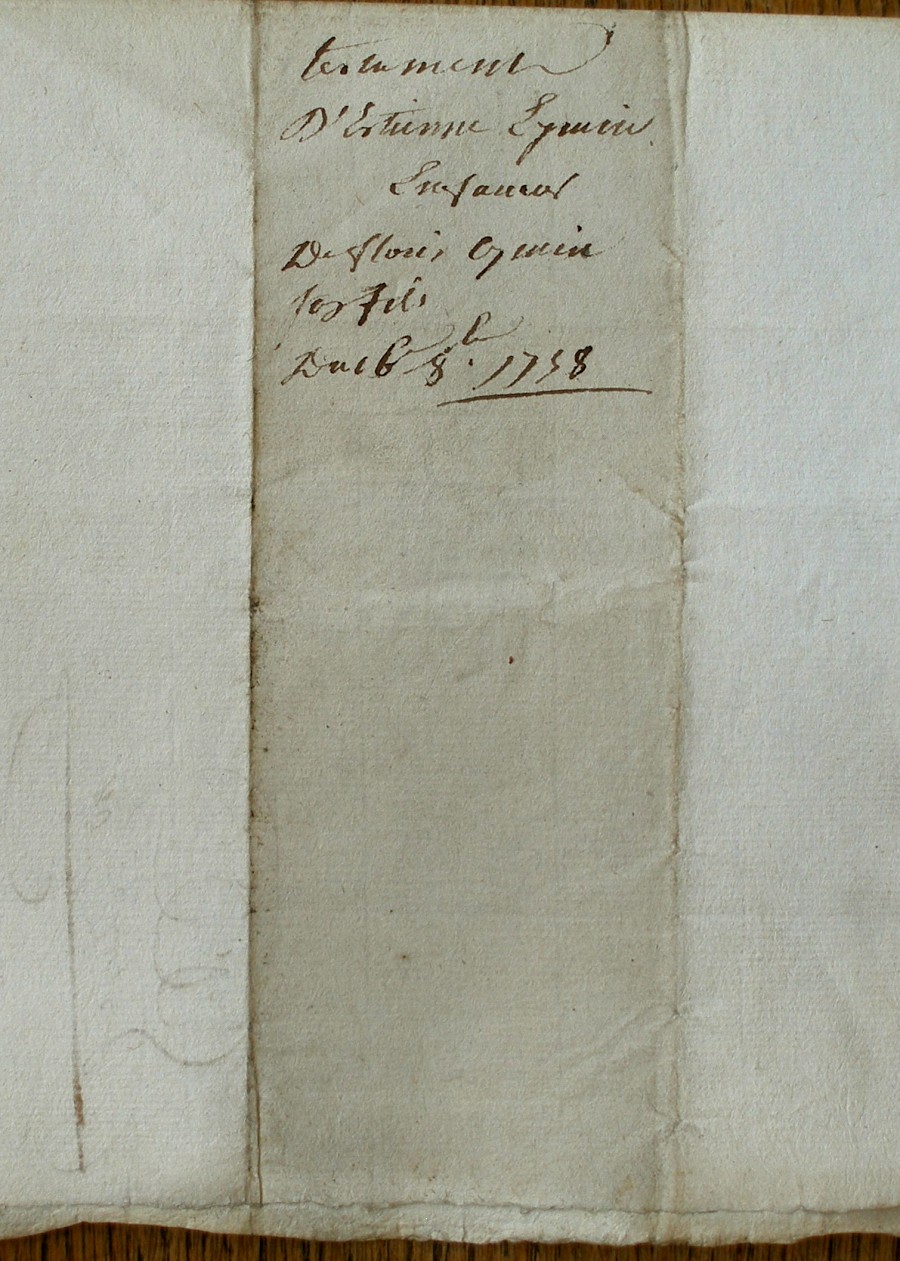 testament
D'Estienne Eymin
En faveur
De floris Eymin
son fils
Du 16 8bre 1758